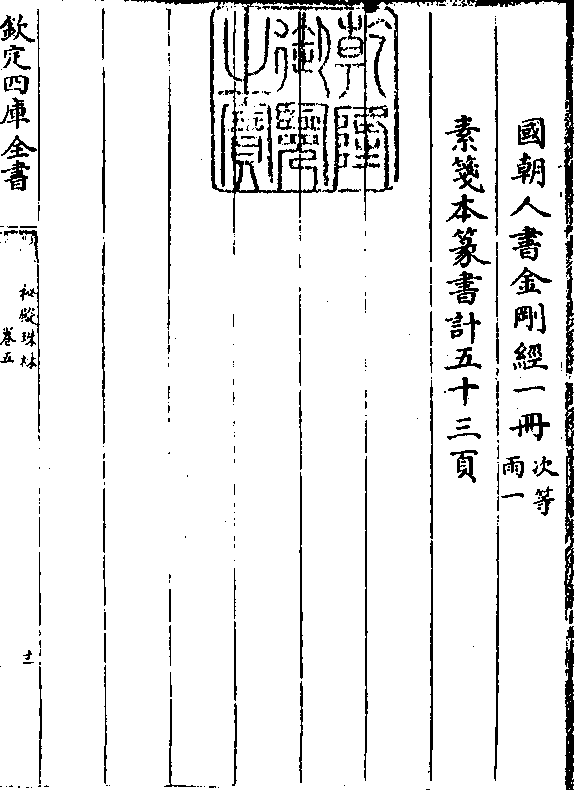 國朝人書金剛經一冊 次等
雨一
素箋本篆書計五十三頁
乾隆
御覽
之寶
欽定四庫全書
祕殿珠林
卷五
十一